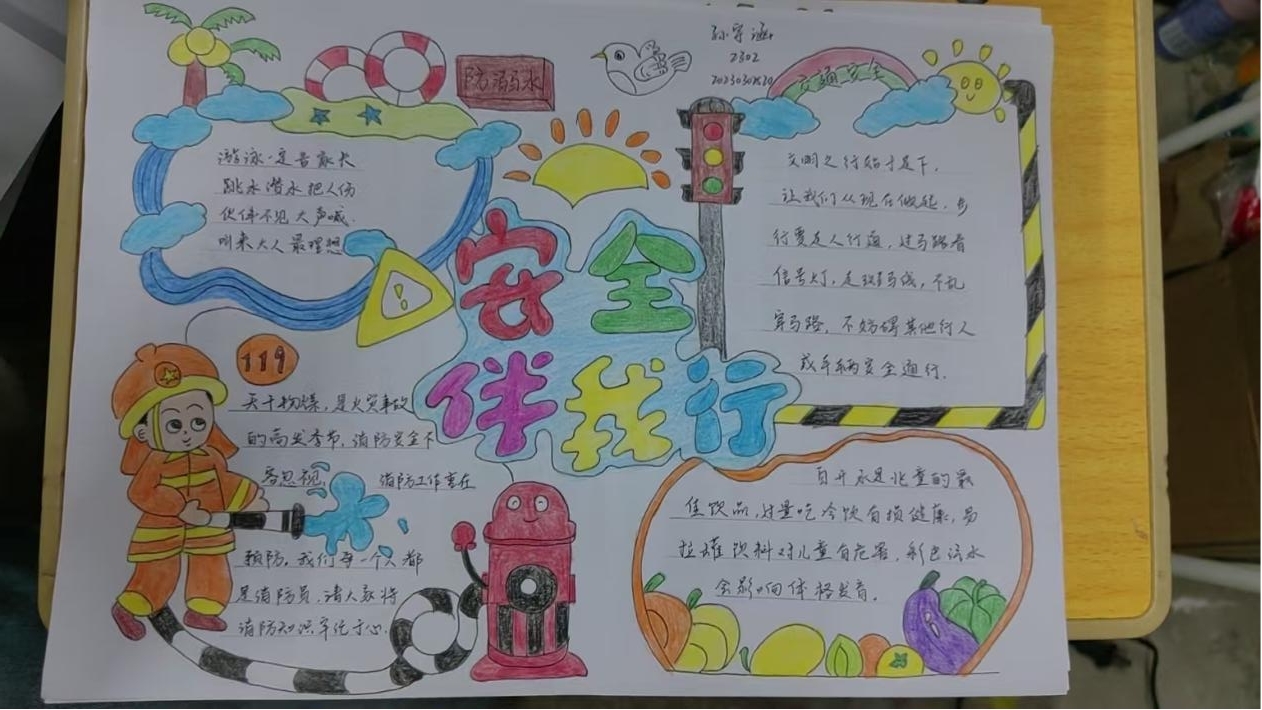 防溺水
孙宇涵
2302
2023030220
交通安全
游泳一定告家长
跳水潜水把人伤
伙伴不见大声喊
叫来大人最理想
文明之行始于足下,
让我们从现在做起,步
行要走人行道,过马路看
信号灯,走斑马线,不乱
穿马路,不妨碍其他行人
或车辆安全通行.
安全
伴我行
119
天干物燥,是火灾事故
的高发季节,消防安全不
容忽视 消防工作重在
预防。我们每一个人都
是消防员,请大家将
消防知识牢记于心
白开水是儿童的最
佳饮品,过量吃冷饮有损健康,易
拉罐饮料对儿童有危害,彩色汽水
会影响体格发育。